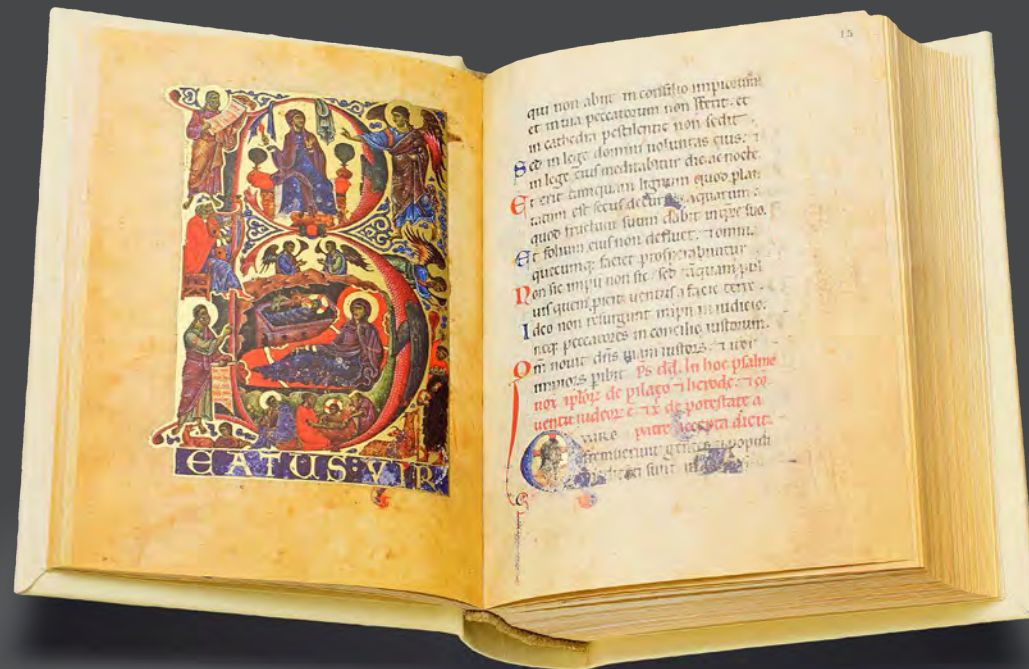 BEATUS·VIR
15
qui non abiit in consilio impiorum
et in uia peccatorum non stetit et
in cathedra pestilentie non sedit
Sed in lege domini uoluntas eius: ⁊
in lege eius meditabitur die ac nocte.
Et erit tamquam lignum quod plan
tatum est secus decursus aquarum:
quod fructum suum dabit in tpre suo.
Et folium eius non defluet: ⁊ omnia
quecumq; faciet prosperabuntur
Non sic impii non sic: sed tāquam pul
uis quem, picit uentus a facie terre
Ideo non resurgunt impii in iudicio:
neq; peccatores in concilio iustorum.
Qm̄ nouit dn̄s uiam iustorꝫ: ⁊ iter
impiorꝫ pibit. Ps dd. In hoc psalmo
de pilato ⁊ herode: ⁊
uentu iudeorꝫ de potestate a
patre accepta dicit.
Q
fremuerunt gentes: ⁊ populi
meditati sunt